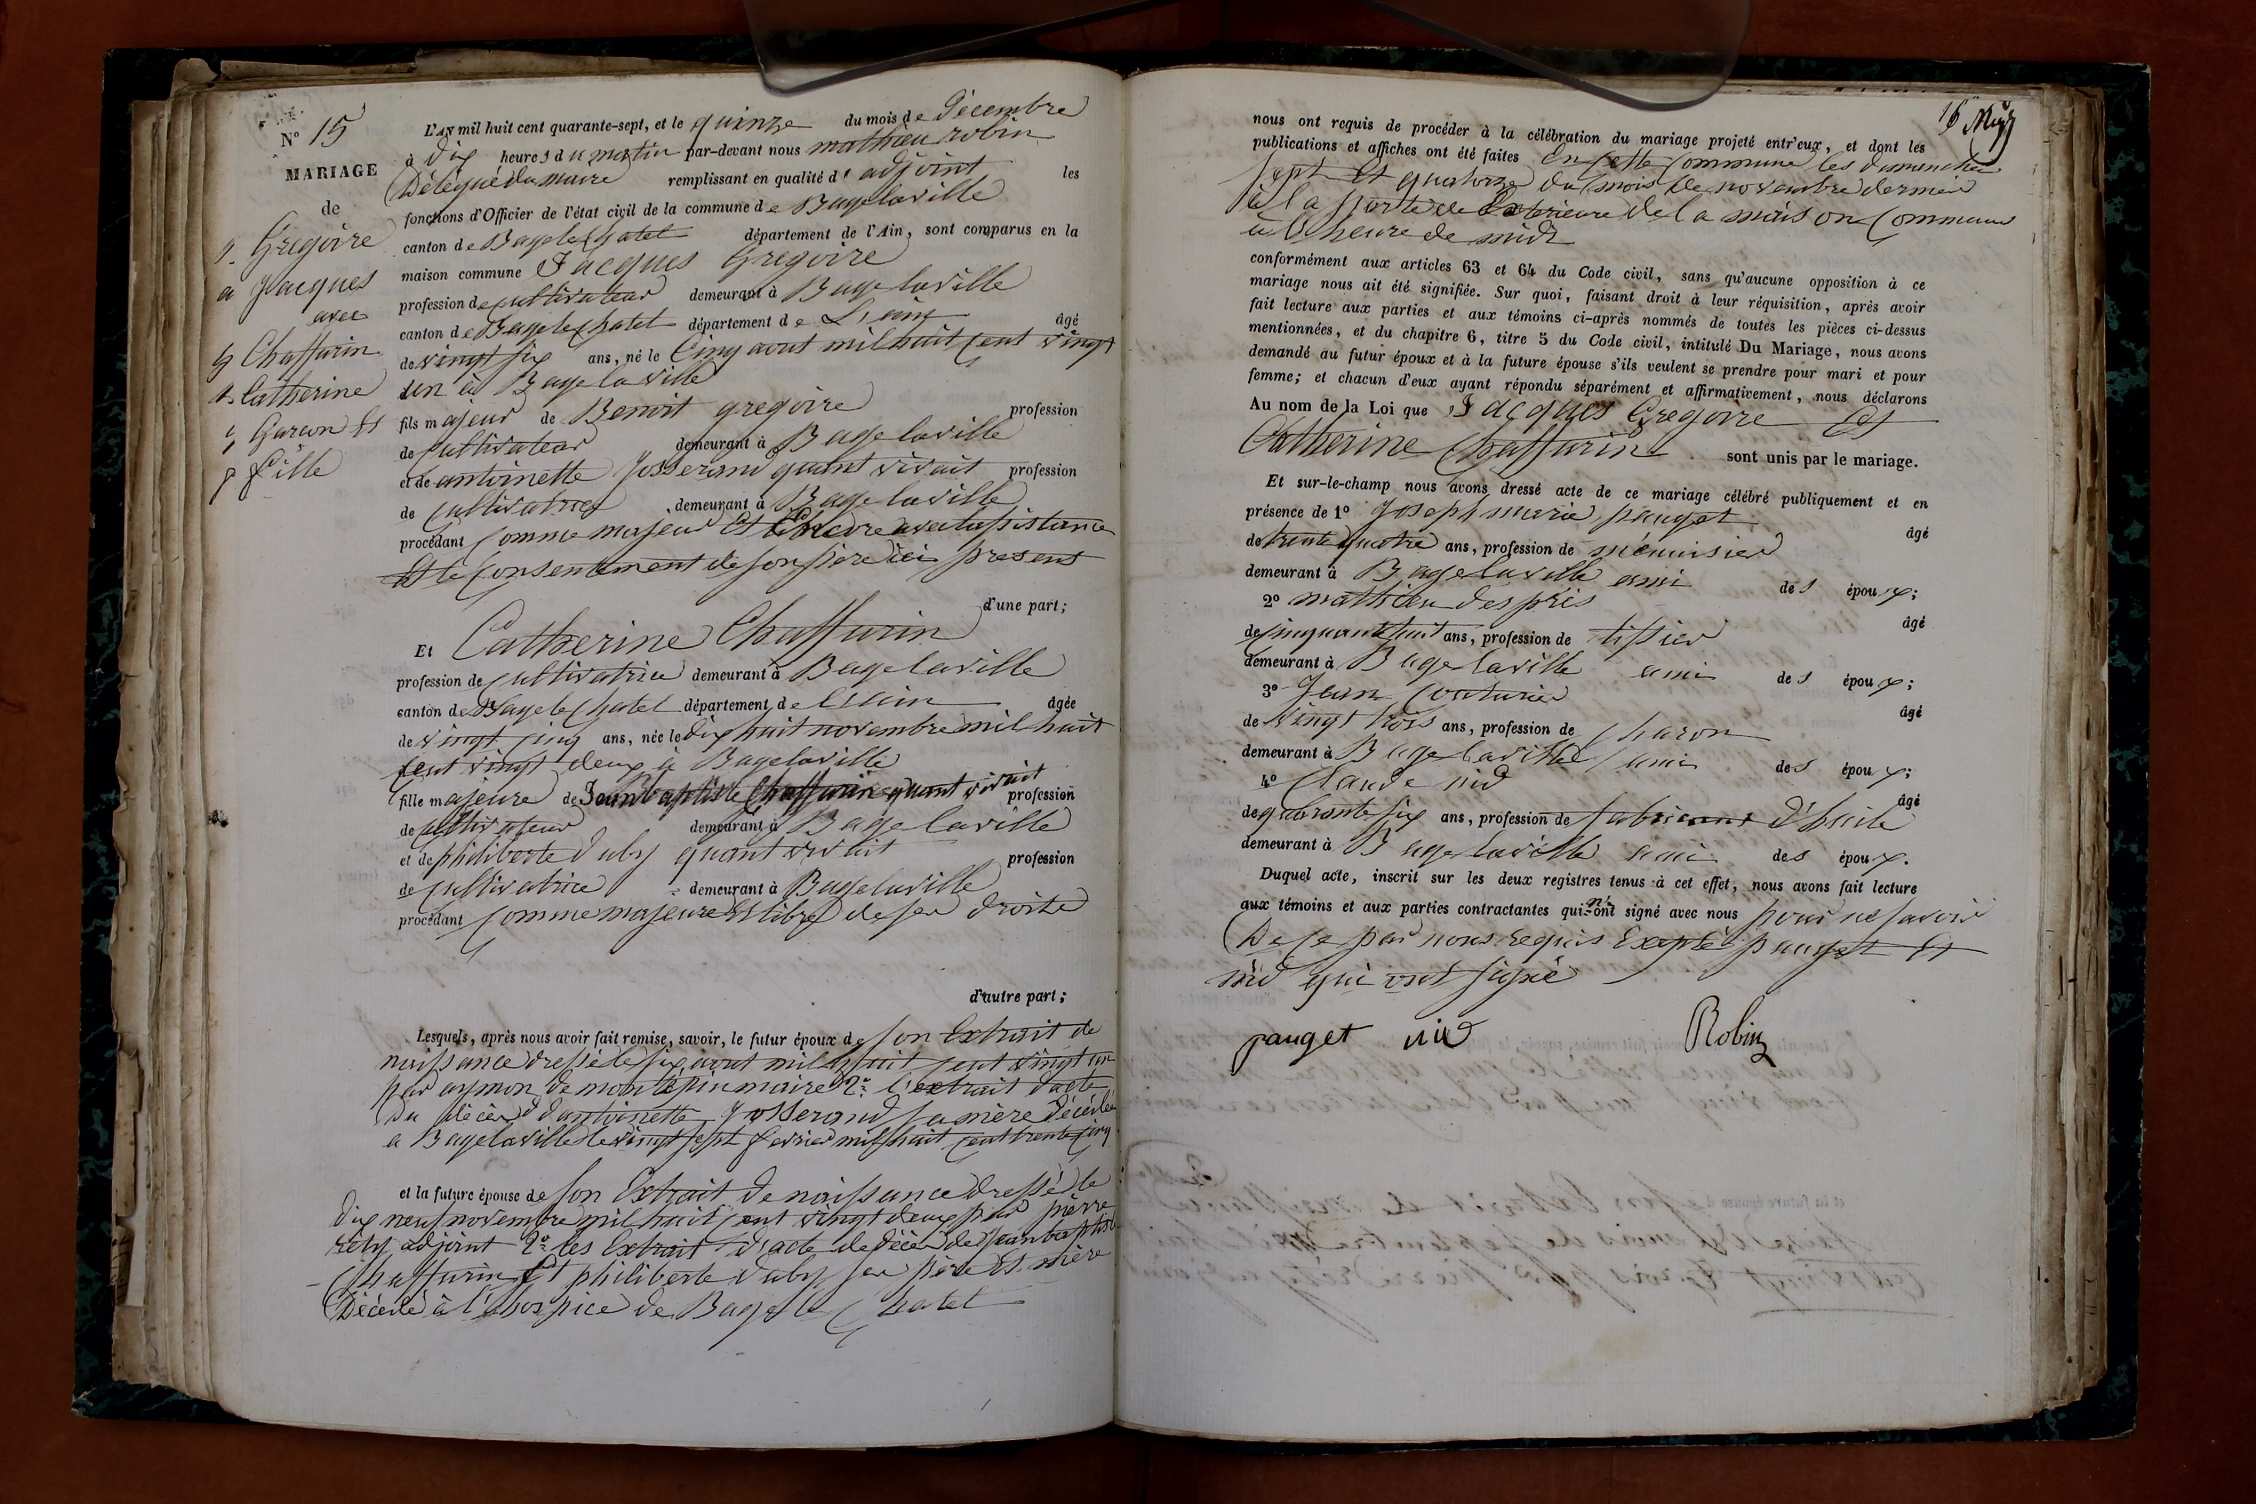 N° 15
MARIAGE
de
Gregoire
Jacques
avec
Chaffurin
Catherine
Garcon Et
fille
L'AN mil huit cent quarante-sept, et le quinze du mois de Décembre
à dix heures du matin par-devant nous mathieu robin
Délégué du maire remplissant en qualité d'adjoint les
fonctions d'Officier de l'état civil de la commune de Bagelaville
canton de Bagelechatel département de l'Ain, sont comparus en la
maison commune Jacques Gregoire
profession de cultivateur demeurant à Bagelaville
canton de Bagelechatel département de L'ain âgé
de vingt six ans, né le Cinq aout mil huit Cent vingt
un à Bagelaville
fils majeur de Benoit gregoire profession
de Cultivateur demeurant à Bagelaville
et de antoinette Josserand quant vivait profession
de Cultivatrice demeurant à Bagelaville
procédant Comme majeur Et Encore avec lassistance
Et le Consentement de son père ici present
d'une part;
Et Catherine Chaffurin
profession de Cultivatrice demeurant à Bagelaville
canton de Bagelechatel département de L'ain âgée
de vingt Cinq ans, née le dix huit novembre mil huit
Cent vingt deux à Bagelaville
fille majeure de Jean baptiste Chaffurin quant vivait profession
de Cultivateur demeurant à Bagelaville
et de philiberte duby quant vivait profession
de Cultivatrice demeurant à Bagelaville
procédant Comme majeure Et libre de ses droits
d'autre part;
Lesquels, après nous avoir fait remise, savoir, le futur époux de son Extrait de
naissance dressé le six aout mil huit Cent vingt un
par aymon de montépin maire 2° l'extrait d'acte
du décès d'antoinette Josserand sa mère décédée
a Bagelaville le vingt sept fevrier mil huit Cent trente Cinq
et la future épouse de son Extrait de naissance dressé le
dix neuf novembre mil huit Cent vingt deux par pierre
réty adjoint 2° les Extrait d'acte de décès de Jean baptiste
Chaffurin Et philiberte duby ses père Et mère
Décédé à l'hospice de Bage le Chatel
16
nous ont requis de procéder à la célébration du mariage projeté entr'eux, et dont les
publications et affiches ont été faites En Cette Commune les dimanches
sept Et quatorze du mois de novembre dernier
à la porte de Exterieure de la maison Commune
à l'heure de midi
conformément aux articles 63 et 64 du Code civil, sans qu'aucune opposition à ce
mariage nous ait été signifiée. Sur quoi, faisant droit à leur réquisition, après avoir
fait lecture aux parties et aux témoins ci-après nommés de toutes les pièces ci-dessus
mentionnées, et du chapitre 6, titre 5 du Code civil, intitulé Du Mariage, nous avons
demandé au futur époux et à la future épouse s'ils veulent se prendre pour mari et pour
femme; et chacun d'eux ayant répondu séparément et affirmativement, nous déclarons
Au nom de la Loi que Jacques Gregoire Et
Catherine Chaffurin sont unis par le mariage.
Et sur-le-champ nous avons dressé acte de ce mariage célébré publiquement et en
présence de 1° Joseph marie pauget âgé
de trente quatre ans, profession de menuisier
demeurant à Bagelaville ami des époux;
2° mathieu despris âgé
de Cinquante huit ans, profession de tissier
demeurant à Bagelaville ami des époux;
3° Jean Couturier âgé
de vingt trois ans, profession de Charon
demeurant à Bagelaville ami des époux;
4° Claude nid âgé
de quarante six ans, profession de fabricant d'huile
demeurant à Bagelaville ami des époux.
Duquel acte, inscrit sur les deux registres tenus à cet effet, nous avons fait lecture
aux témoins et aux parties contractantes qui n'ont signé avec nous pour ne savoir
De Ce par nous requis Excepté pauget Et
nid qui ont signé
pauget nid Robin